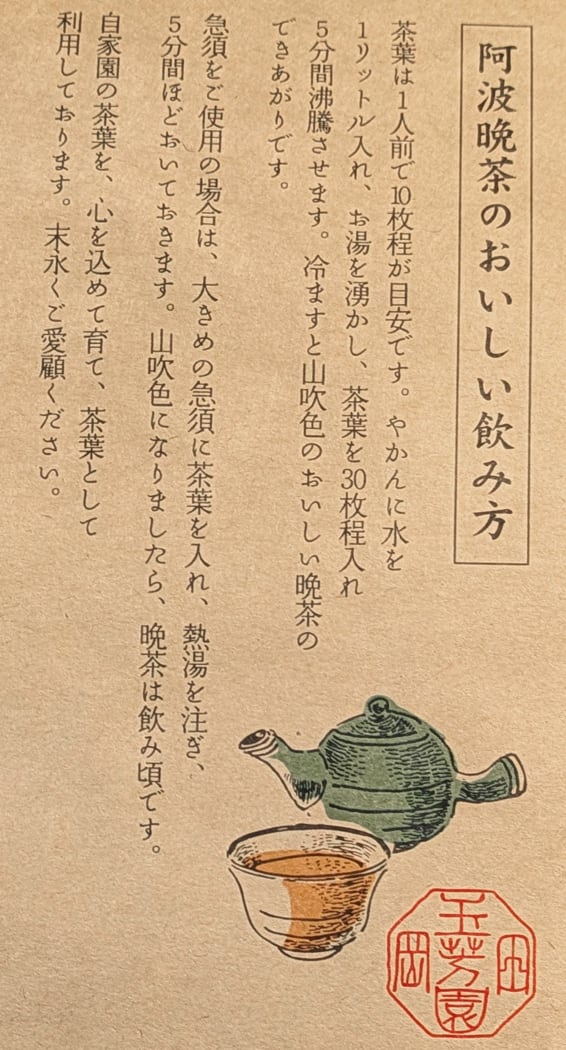 阿波晩茶のおいしい飲み方
茶葉は1人前で10枚程が目安です。やかんに水を
1リットル入れ、お湯を湧かし、茶葉を30枚程入れ
5分間沸騰させます。冷ますと山吹色のおいしい晩茶の
できあがりです。
急須をご使用の場合は、大きめの急須に茶葉を入れ、熱湯を注ぎ、
5分間ほどおいておきます。山吹色になりましたら、晩茶は飲み頃です。
自家園の茶葉を、心を込めて育て、茶葉として
利用しております。末永くご愛顧ください。
玉芳園
岡田